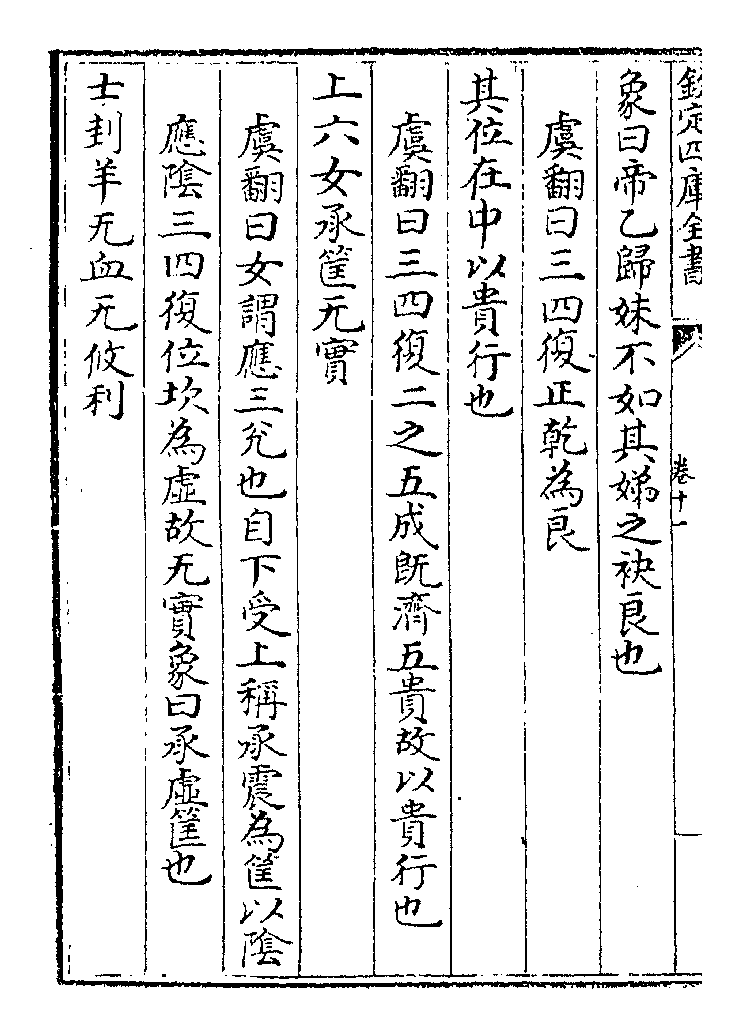 欽定四庫全書
卷十一
象曰帝乙歸妹不如其娣之袂良也
虞翻曰三四復正乾為良
其位在中以貴行也
虞翻曰三四復二之五成既濟五貴故以貴行也
上六女承筐无實
虞翻曰女謂應三兊也自下受上稱承震為筐以陰
應陰三四復位坎為虛故无實象曰承虛筐也
士刲羊无血无攸利